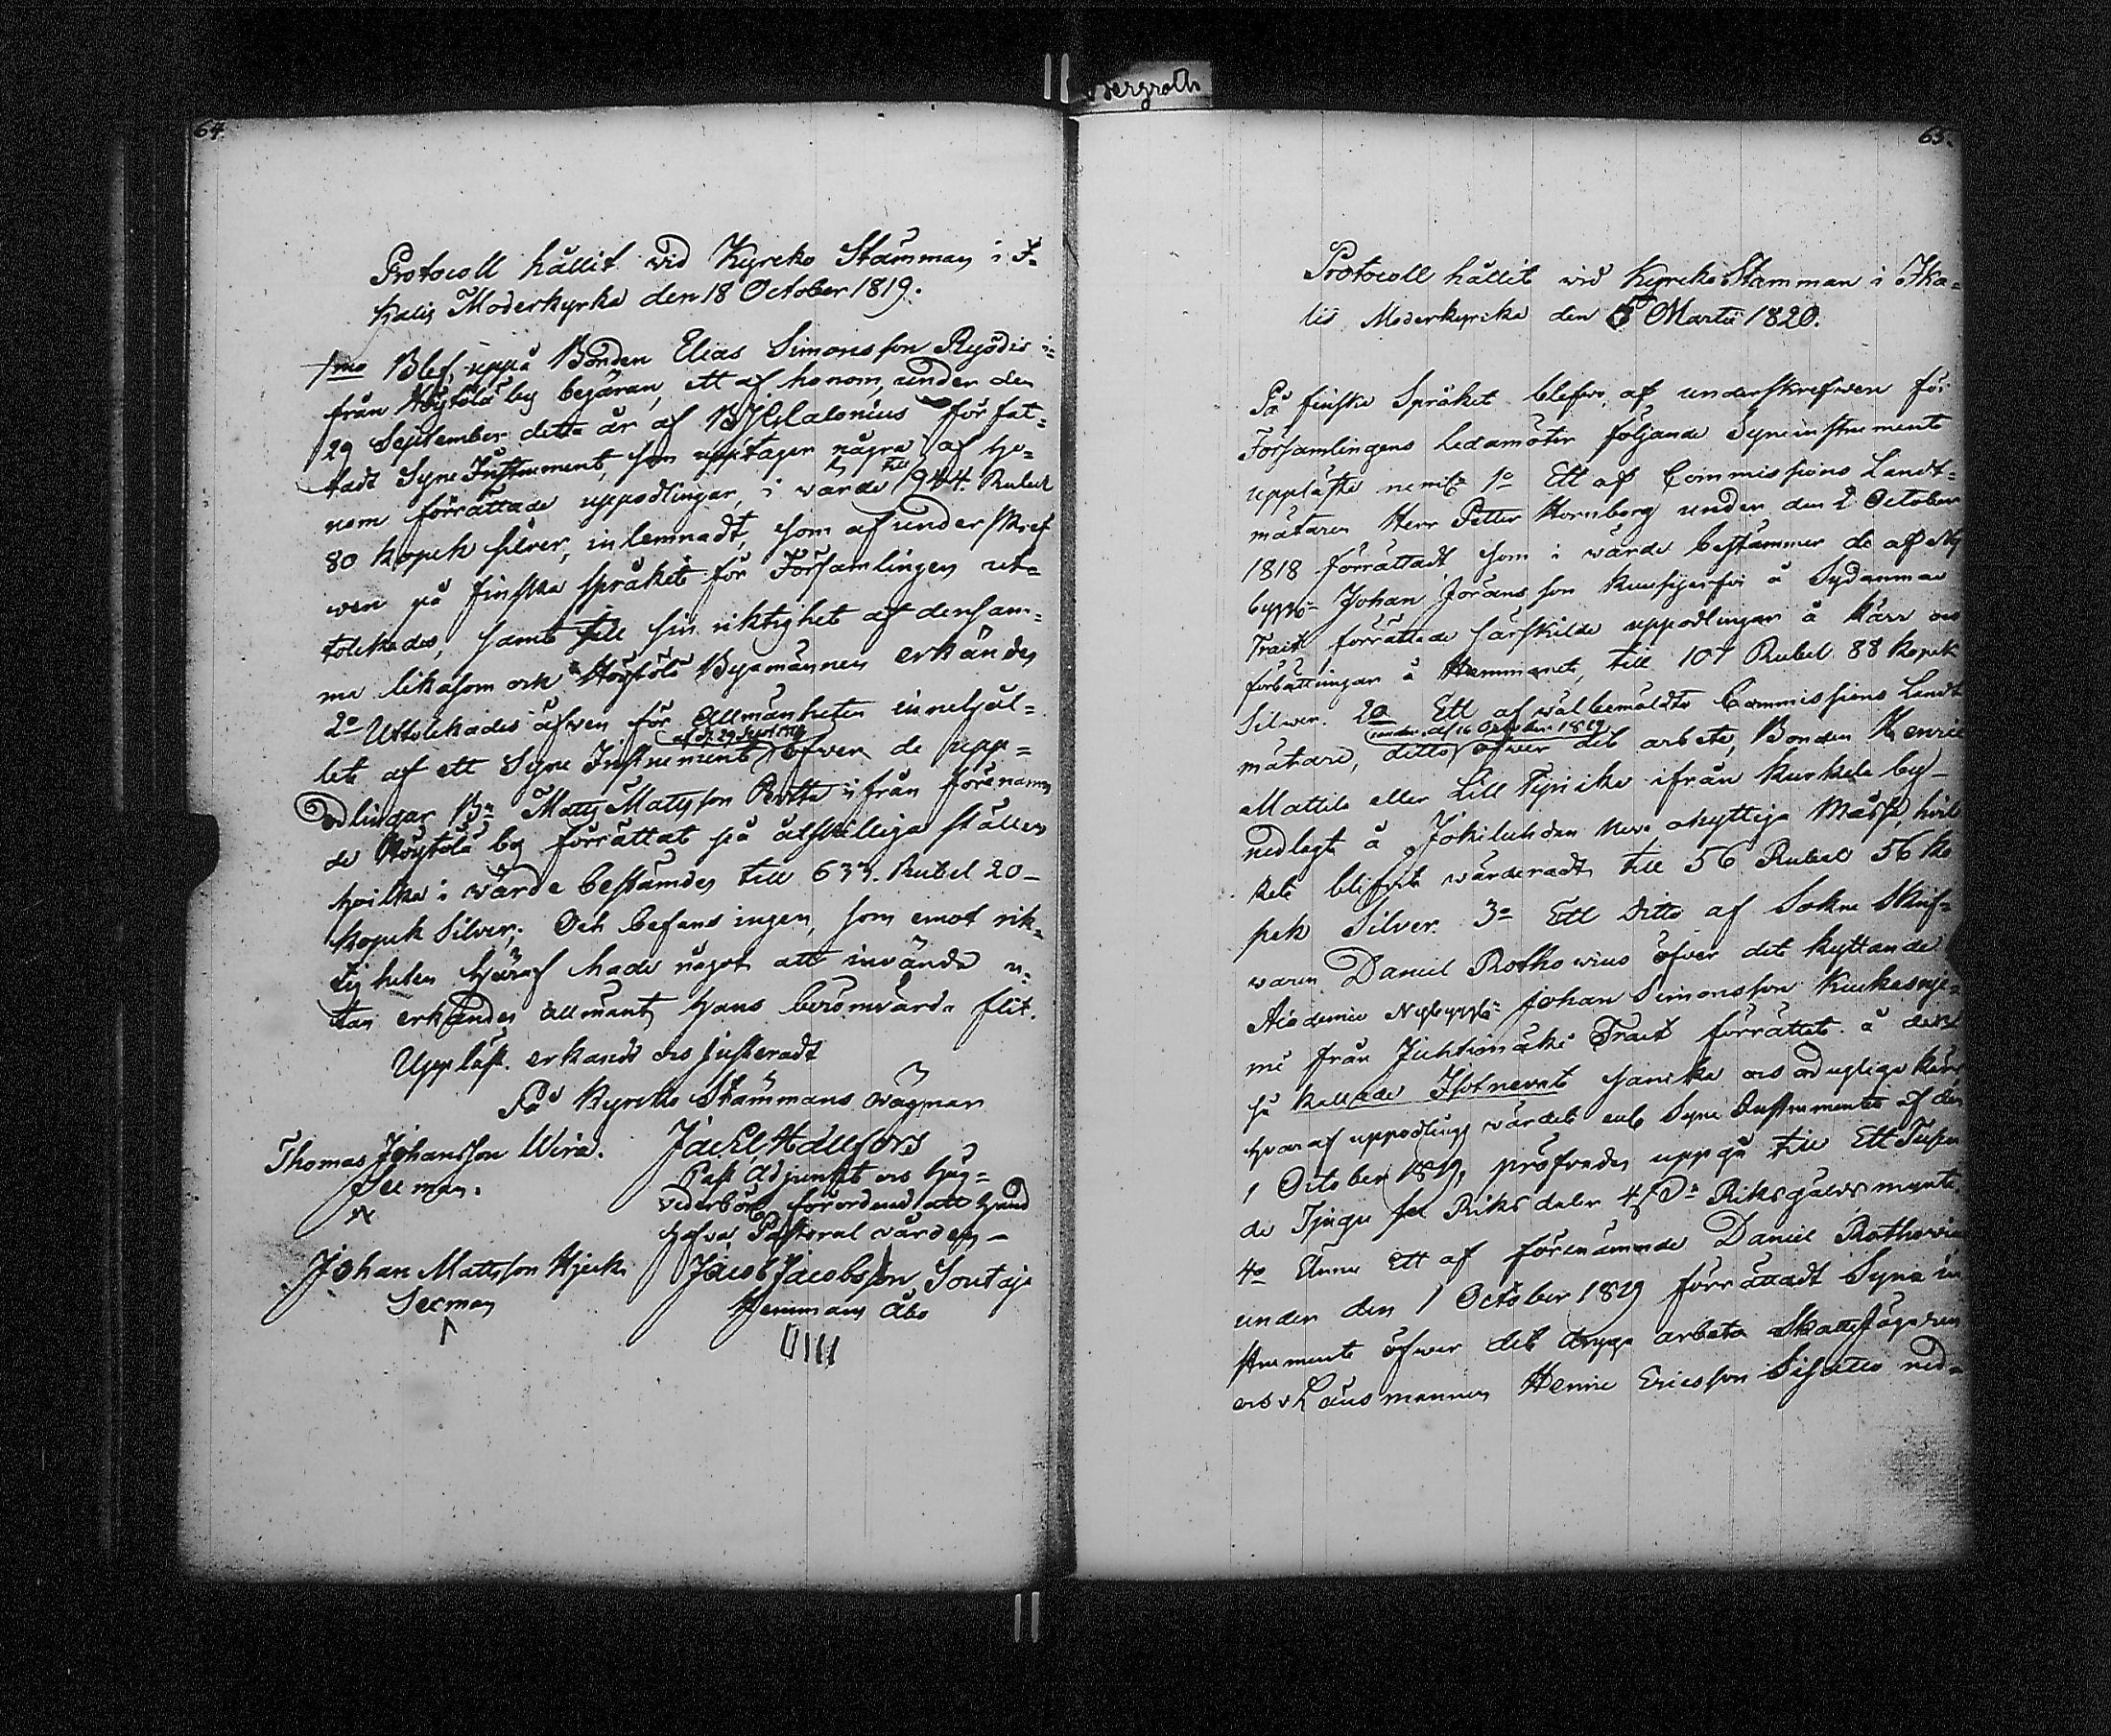 Bergroth
64.
Protocoll hållit wid Kyrcko Stämman i I-
kalis Moderkyrka den 18 October 1819.
1mo Blef uppå Bonden Elias Simonsson Rysödis i-
från Höytölä by begäran, ett af honom, under den
29 September detta år af B: Calonius förfat-
tadt Syne Instrument, som upptager några af ho-
nom förrättade uppodlingar, i wärde till 1944. Rubel
80 kopek silver, inlemnadt, som af underskref
wen på finska språket för Församlingen ut-
tolkades, samt till sin riktighet af densam-
ma likasom ock Höytölä Byamännen erkändes
2o Uttolkades äfwen för Allmänheten innehål-
let af ett Syne Instrument af d. 29 Sept 1819 öfwer de upp-
odlingar Bn Matts Mattsson Rötta ifrån förenämn
de Höytölä by förrättat på åtskilliga ställen
hwilka i wärde bestämdes till 633. Rubel 20-
kopek Silver; Och befans ingen, som emot rik-
tigheten häraf hade något att invända u-
tan erkändes allmänt hans berömvärda flit.
Uppläst. erkändt och justeradt
På Kyrcko Stämmans wägnar
Thomas Johansson Wira.
Sexman.
Jac El Hällfors
Past Adjunkt och här-
viderbörl förordnad att hand
hafwa Pastoral wården-
Johan Mattsson Kjerki
Sexman
Jacob Jacobsson Sontaje
Hemmans Åbo
65.
Protocoll hållit wid Kyrcko Stämman i Ika-
lis Moderkyrka den 5 Martii 1820.
På finska Språket blefwo af underskrefwen för
Församlingens Ledamöter följande Syneinstrumente
uppläste neml. 1o Ett af Commissions Landt-
mätaren Herr Petter Hornborg under den 2 October
1818 förrättadt som i wärde bestämmer de af Ny
bygg. Johan Jöransson å Sydänmaa
Trait förrättade särskilde uppodlingar å kärr och
förbättringar å Hemmanet, till 107 Rubel 88 kopek
Silver. 2o Ett af wälbemäldte Commissions Landt
mätare, ditto under d. 16 October 1819 öfwer det arbete, Bonden Henric
Mattila eller Lill Tyrikö ifrån Kurkela by-
nedlagt å Jokiluhdan Neva onyttiga Måsse, hvil
ket blifvit wärderadt till 56 Rubel 56 ko
pek Silver. 3o Ett Ditto af Sokne Skrif-
waren Daniel Rothowius öfver det kyttande
Academie Nybygg. Johan Simonsson
mi från Juhtimäki Trait förrättat å den
så kallade Isosnevat sanka och odugliga kärr
hwaraf uppodlings wärdet enl. Syne Instrumentet af den
1 October 1819, pröfvades uppgå till Ett Tusen
de Tjugu sex Riksdaler 4 s. Do Riksgälds mynt.
4o Ännu Ett af förenämnde Daniel Rothovius
under den 1 October 1819 förrättadt Syne in
strument öfwer det dryga arbete Skattejägaren
och Länsmannen Henric Ericsson Sisätto ned-